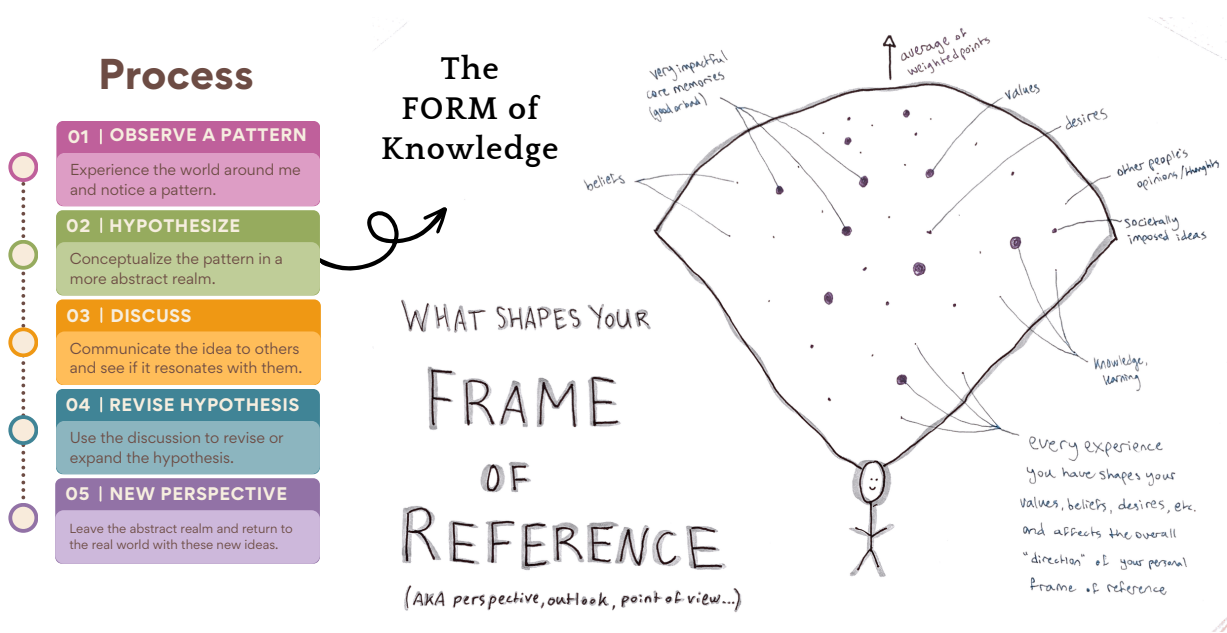 Process
01 | OBSERVE A PATTERN
Experience the world around me
and notice a pattern.
02 | HYPOTHESIZE
Conceptualize the pattern in a
more abstract realm.
03 | DISCUSS
Communicate the idea to others
and see if it resonates with them.
04 | REVISE HYPOTHESIS
Use the discussion to revise or
expand the hypothesis.
05 | NEW PERSPECTIVE
Leave the abstract realm and return to
the real world with these new ideas.
The
FORM of
Knowledge
WHAT SHAPES YOUR
FRAME
OF
REFERENCE
(AKA perspective, outlook, point of view...)
very impactful
core memories
(good or bad)
beliefs
average of
weighted points
values
desires
other people's
opinions/thoughts
societally
imposed ideas
knowledge,
learning
every experience
you have shapes your
values, beliefs, desires, etc.
and affects the overall
"direction" of your personal
frame of reference